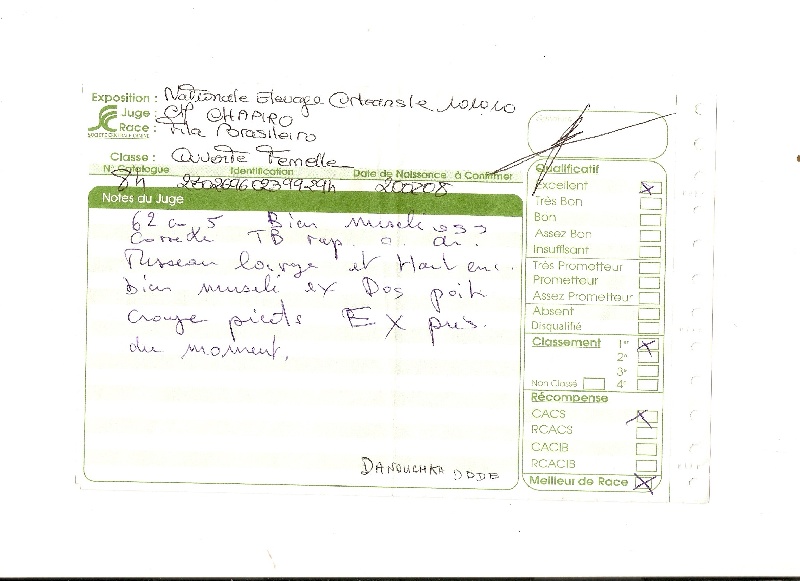 Exposition : Nationale Elevage Orleans le 101010
Juge : CH CHAPIRO
Race : Fila Brasileiro
Classe : Ouverte Femelle
N° Catalogue Identification Date de Naissance à Confirmer
200208
Notes du Juge
62 cm 5 Bien musclé
correcte TB rap. a. di.
Museau large et Haut enc.
bien musclé ex Dos poit
croupe pieds EX prés.
du moment.
DANOUCHKA
Qualificatif
Excellent X
Très Bon
Bon
Assez Bon
Insuffisant
Très Prometteur
Prometteur
Assez Prometteur
Absent
Disqualifié
Classement 1er X
2e
3e
Non Classé 4e
Récompense
CACS X
RCACS
CACIB
RCACIB
Meilleur de Race X